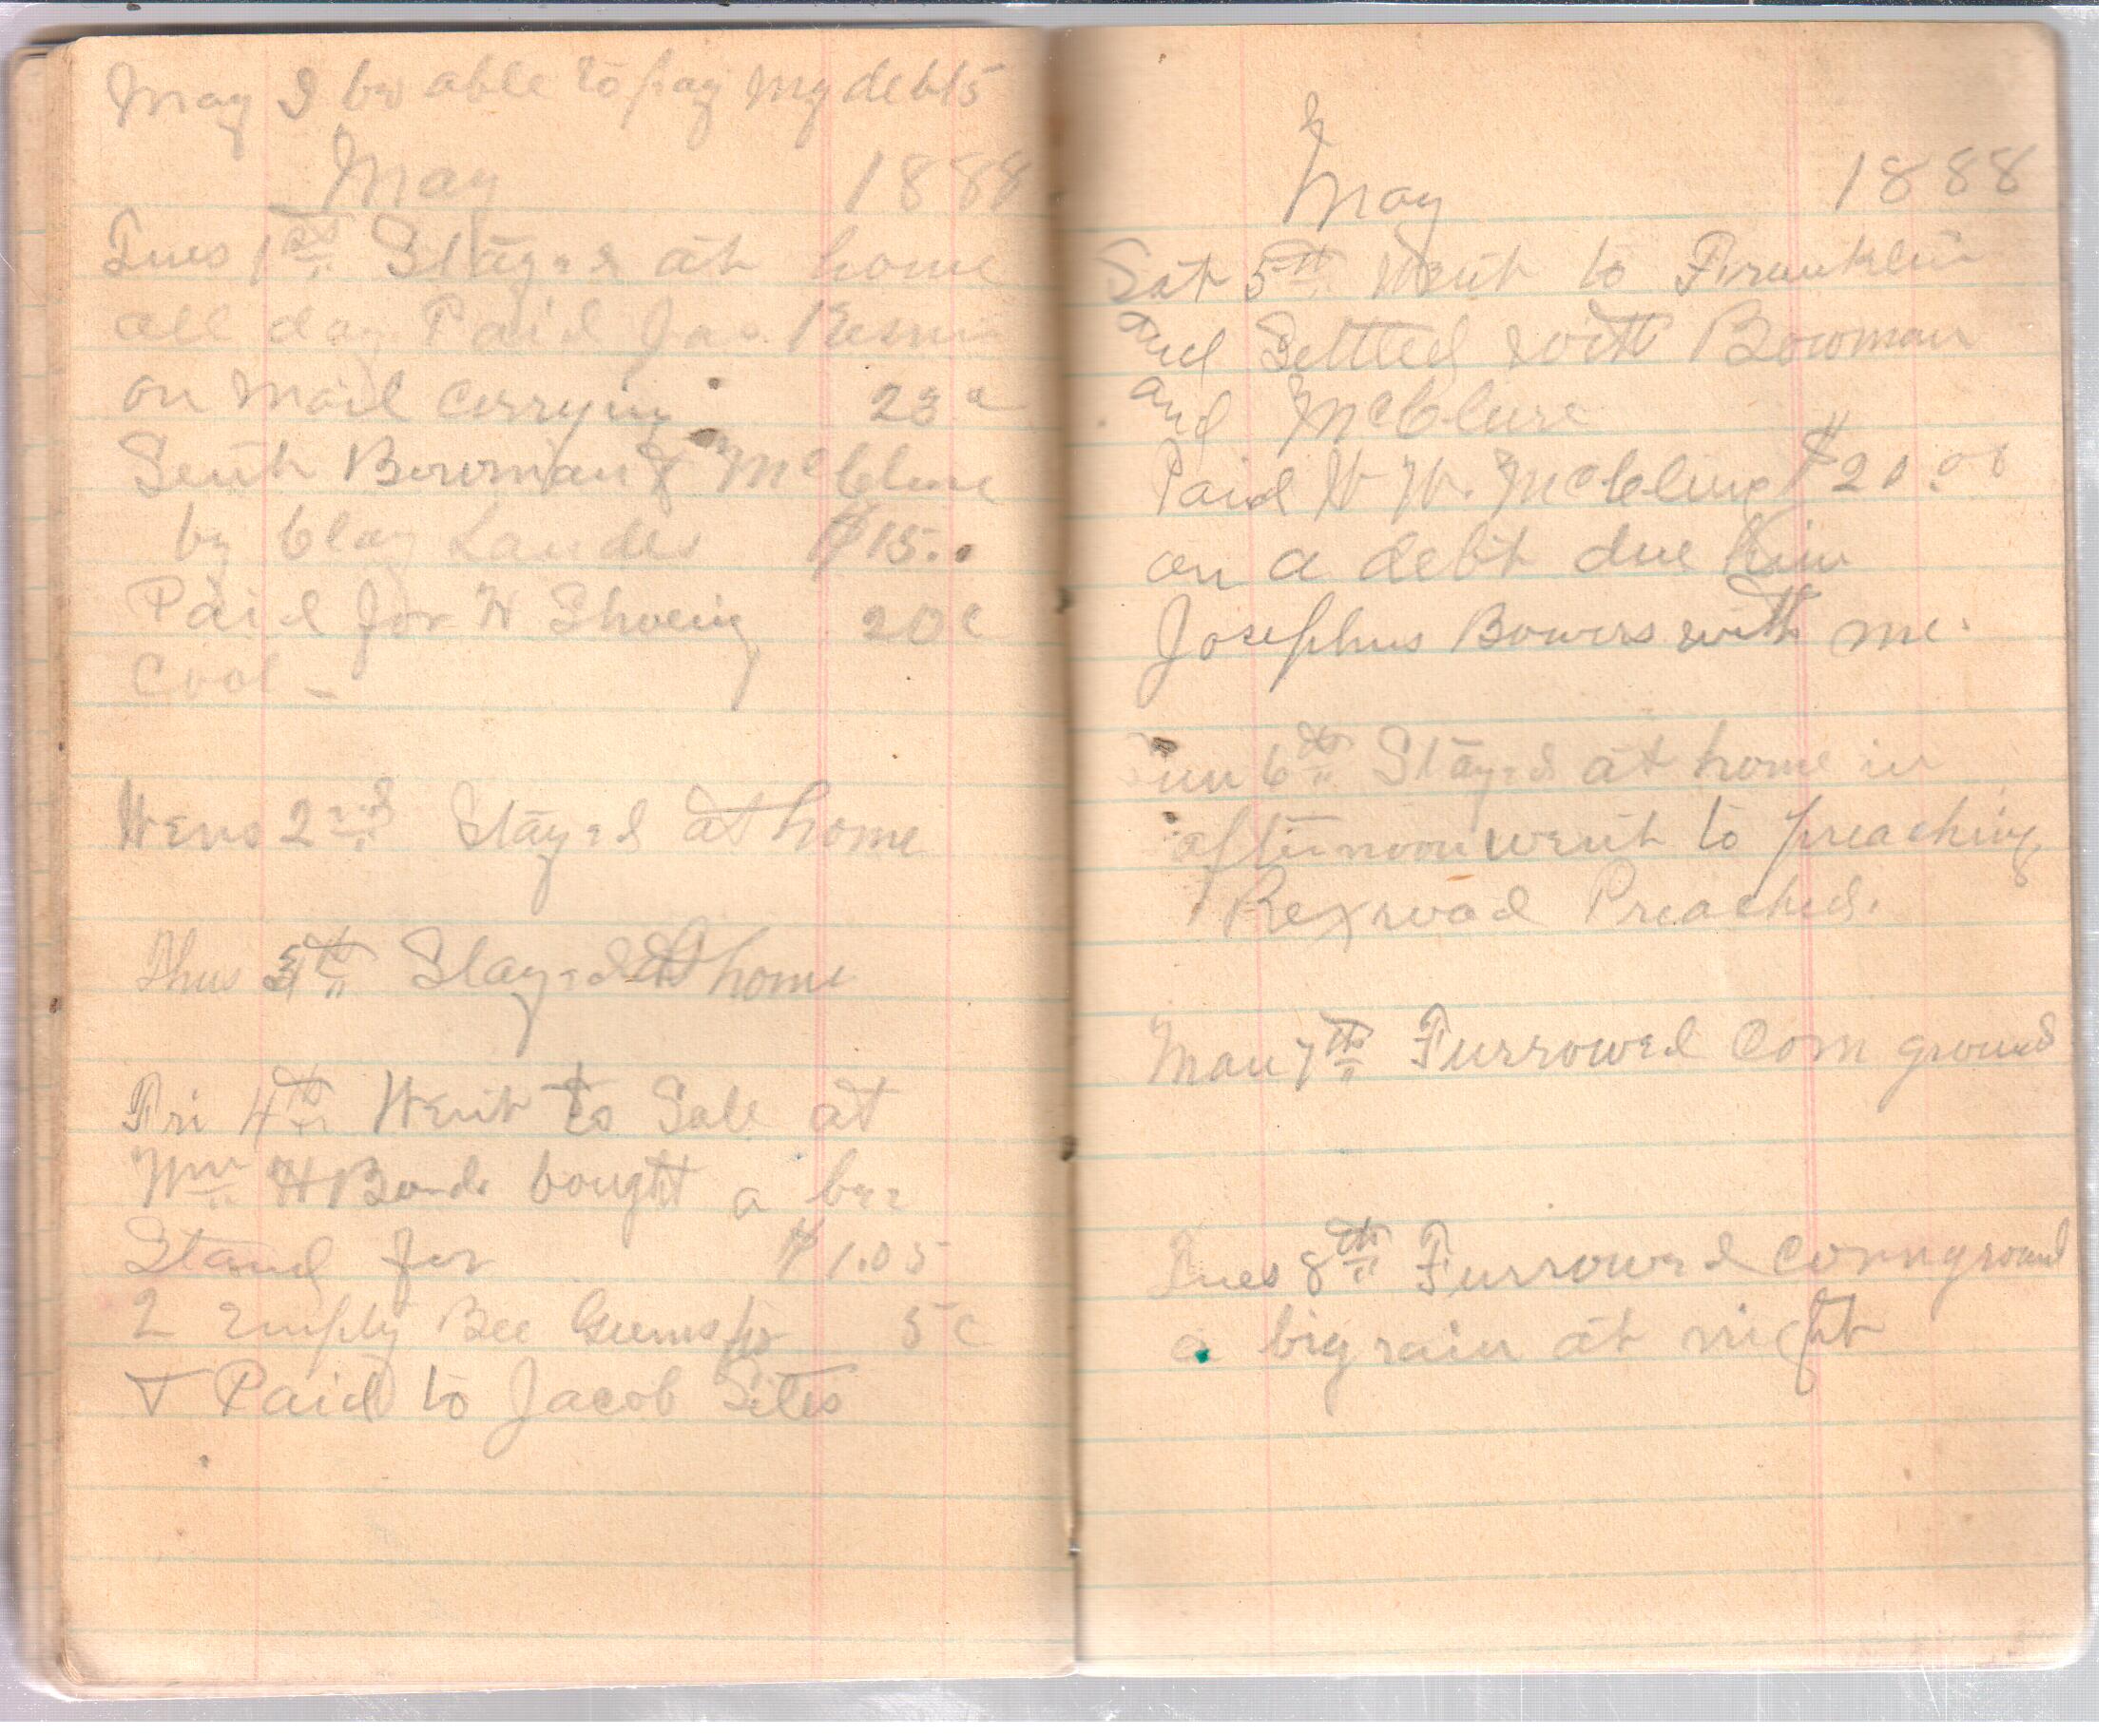 May I be able to pay my debts
May 1888
Tues 1st Stayed at home
all day Paid Jas.
on mail carrying 23 c
Sent Bowman & McClure
by Clay Landes $15..
Paid for H Shoeing 20 c
Cool -
Wens 2nd Stayed at home
Thus 3th Stayed at home
Fri 4th Went to Sale at
Wm H bought a bee
Stand for $1.05
2 Empty Bee Gums for 5 c
& Paid to Jacob Sites
May 1888
Sat 5th Went to Franklin
and Settled with Bowman
and McClure
Paid W. McCling $20.00
on a debt due him
Josephus Bowers with me.
Sun 6th Stayed at home in
afternoon went to preaching
Rexroad Preached.
Mon 7th Furrowed Corn ground
Tues 8th Furrowed corn ground
a big rain at night